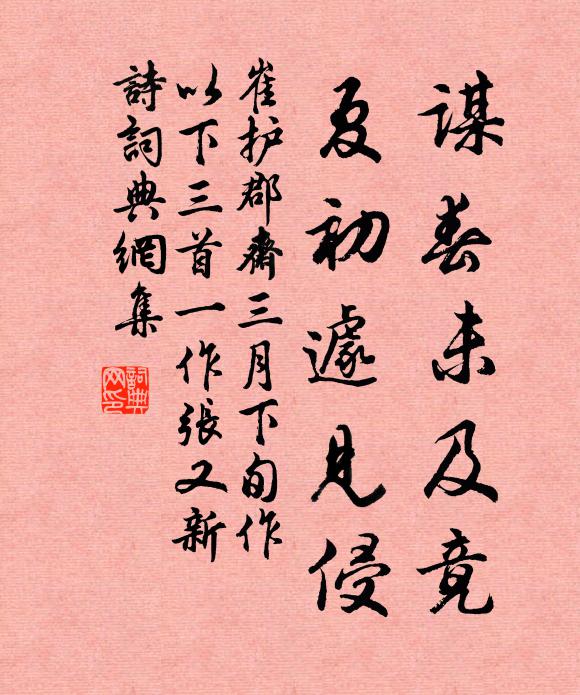 謀春未及竟
夏初遽見侵
崔护郡齋三月下旬作
以下三首一作張又新
詩詞典網集
詞典網印